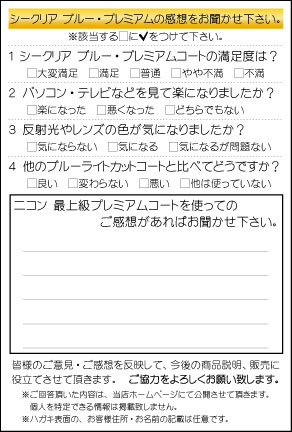 シークリア ブルー・プレミアムの感想をお聞かせ下さい。
※該当する□に✔をつけて下さい。
1 シークリア ブルー・プレミアムコートの満足度は?
□大変満足 □満足 □普通 □やや不満 □不満
2 パソコン・テレビなどを見て楽になりましたか?
□楽になった □悪くなった □どちらでもない
3 反射光やレンズの色が気になりましたか?
□気にならない □気になる □気になるが問題ない
4 他のブルーライトカットコートと比べてどうですか?
□良い □変わらない □悪い □他は使っていない
ニコン 最上級プレミアムコートを使っての
ご感想があればお聞かせ下さい。
皆様のご意見・ご感想を反映して、今後の商品説明、販売に
役立てさせて頂きます。 ご協力をよろしくお願い致します。
※ご回答頂いた内容は、当店ホームページにて公開させて頂きます。
個人を特定できる情報は掲載致しません。
※ハガキ表面の、お客様住所・お名前の記載は任意です。